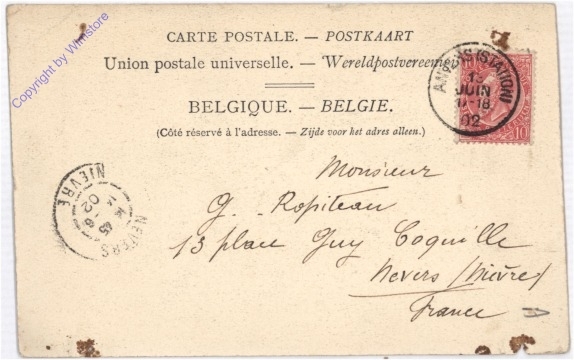 Copyright by Wimstore
CARTE POSTALE. — POSTKAART
Union postale universelle. — Wereldpostvereeni
BELGIQUE. — BELGIE.
(Côté réservé à l'adresse. — Zijde voor het adres alleen.)
ANVERS (STATION)
1
JUIN
17-18
02
10
NEVERS
NIEVRE
02
Monsieur
G. Ropiteau
13 place Guy Coquille
Nevers (Nièvre)
France